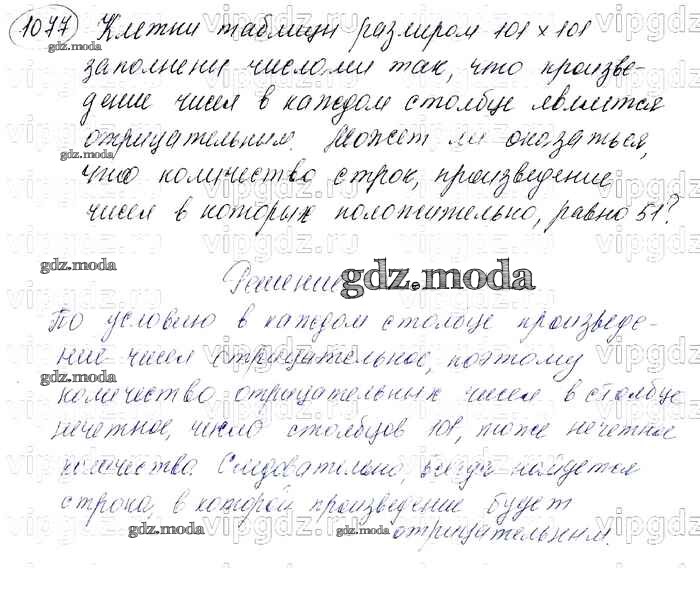 1077 Клетки таблицы размером 101 × 101
заполнены числами так, что произве-
дение чисел в каждом столбце является
отрицательным. Может ли оказаться,
что количество строк, произведение
чисел в которых положительно, равно 51?
Решение
По условию в каждом столбце произведе-
ние чисел отрицательное, поэтому
количество отрицательных чисел в столбце
нечетное, число столбцов 101, тоже нечетное
количество. Следовательно, всегда найдется
строка, в которой произведение будет
отрицательным.
gdz.moda
gdz.moda
gdz.moda
gdz.moda
gdz.moda
gdz.moda
gdz.moda
gdz.moda
gdz.moda
vipgdz.ru